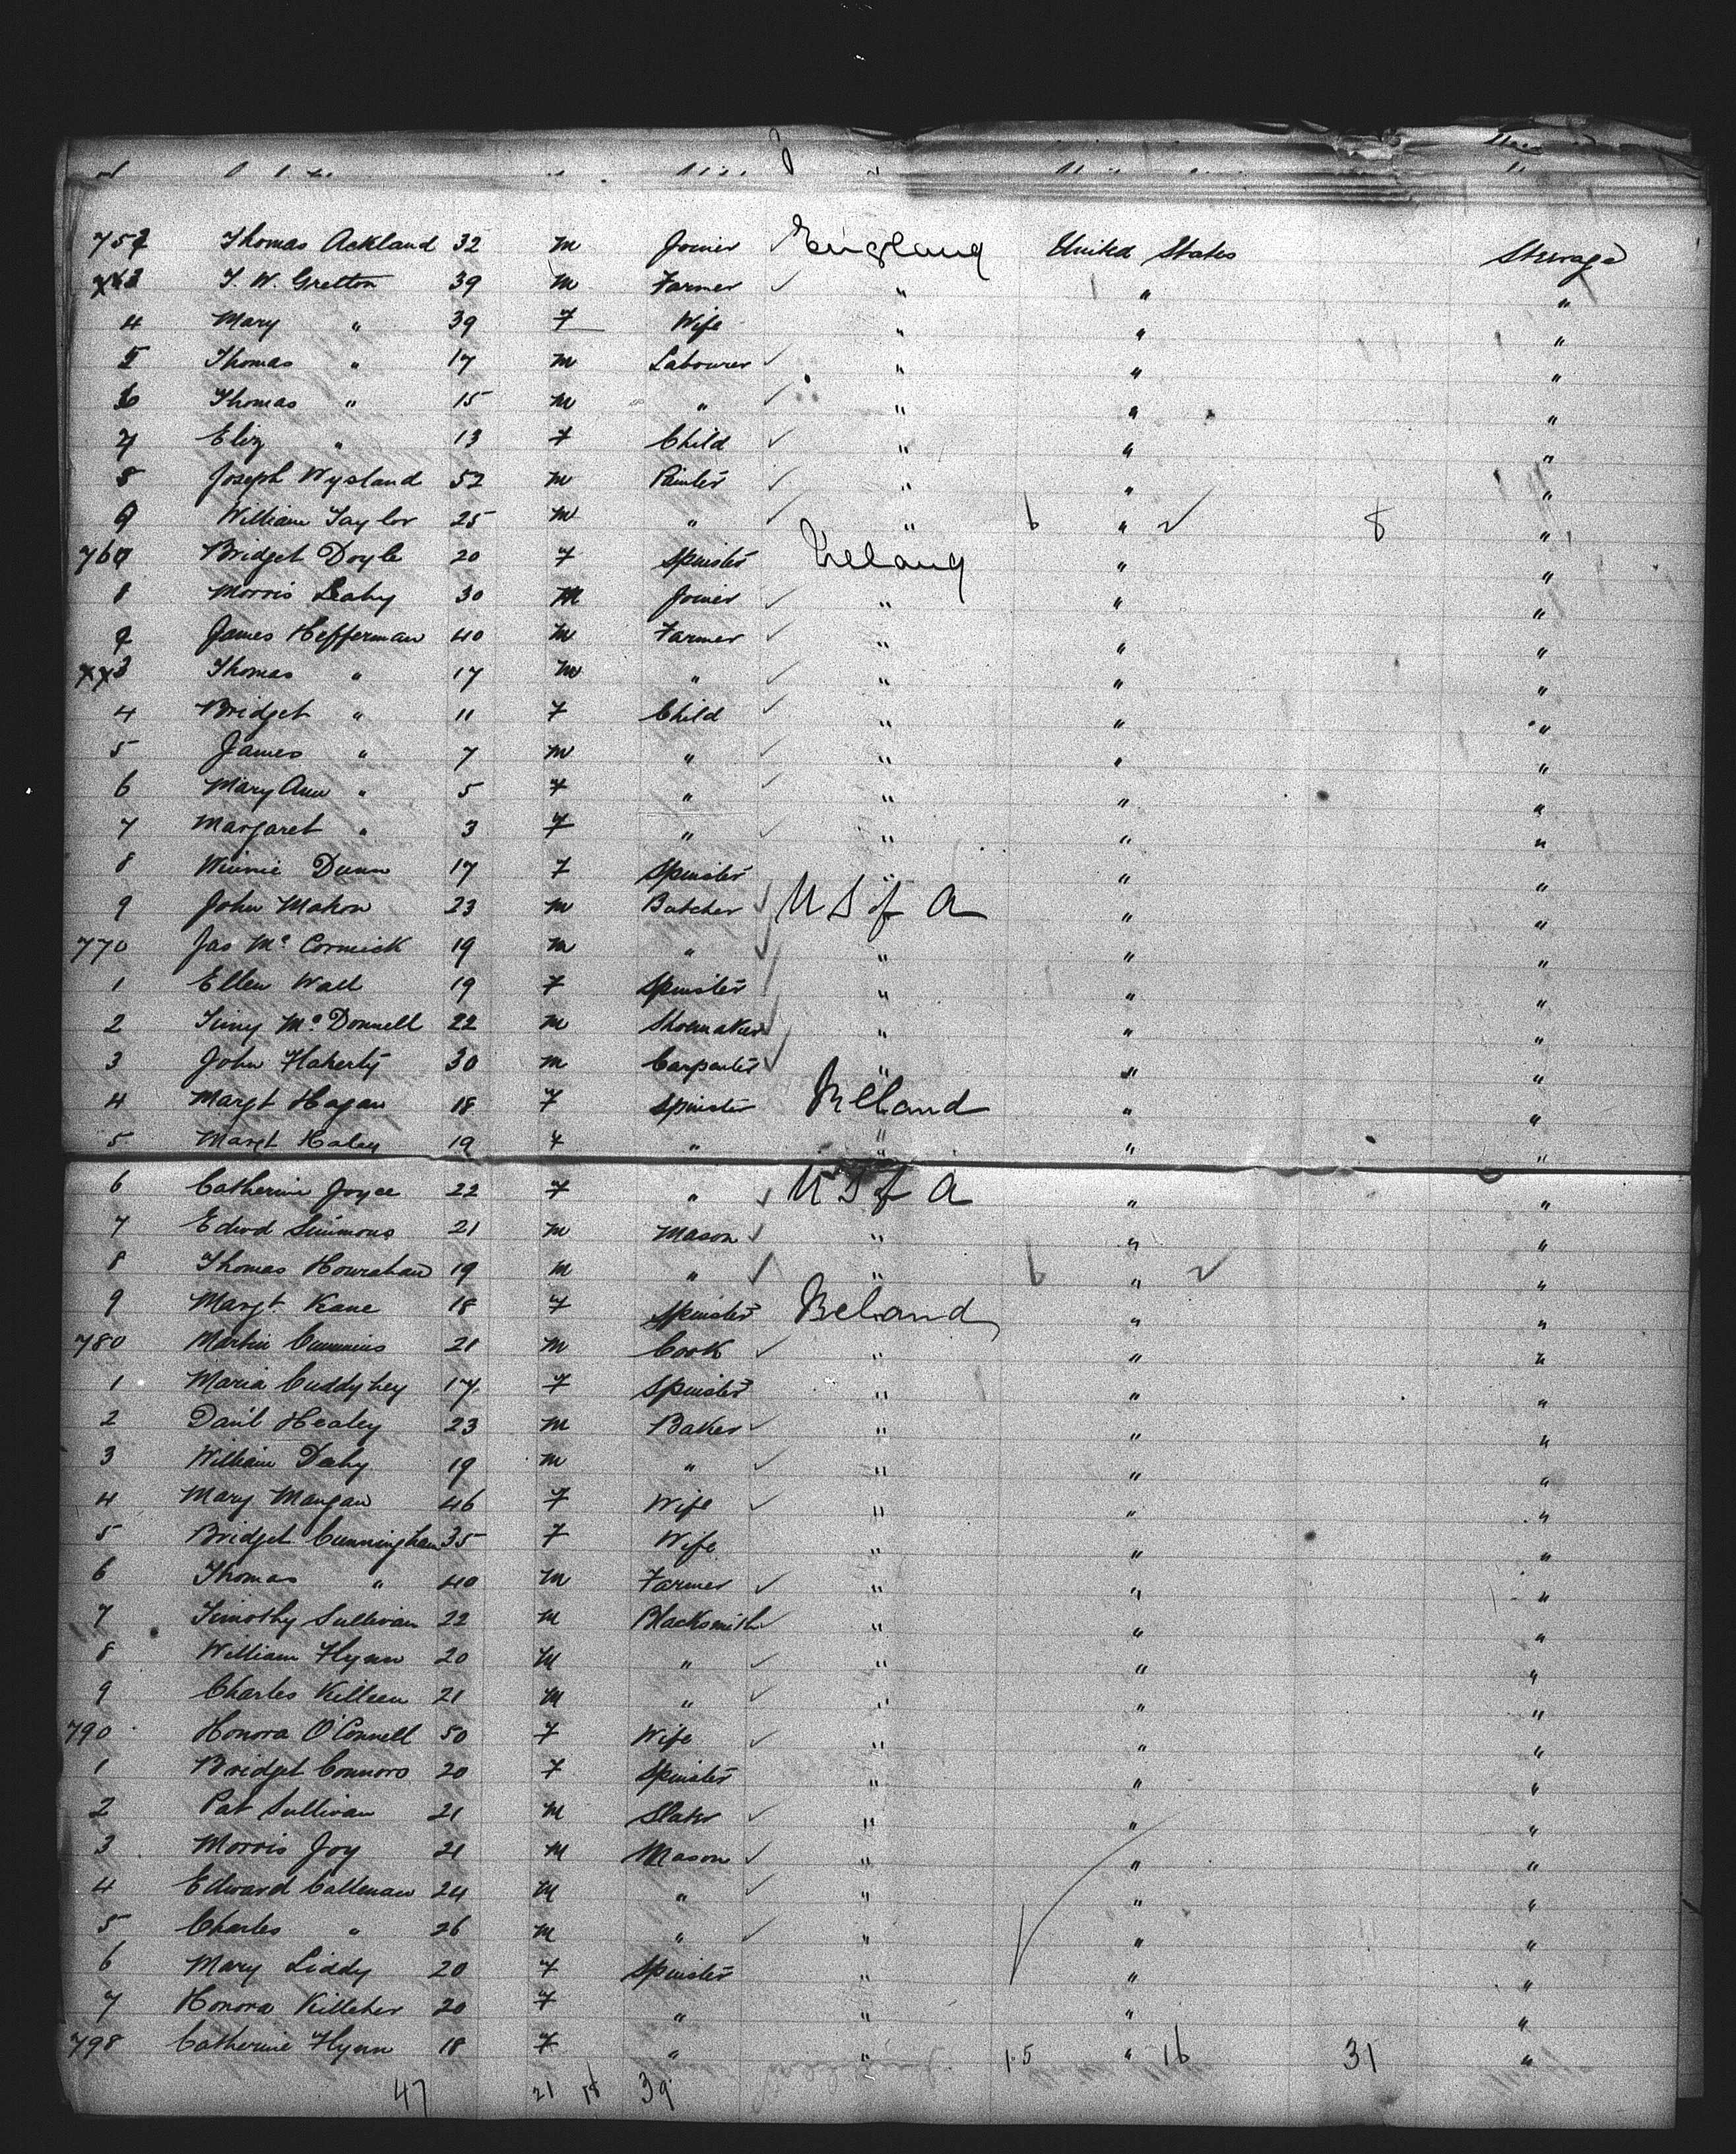 757 Thomas Ackland 32 m Joiner ✓ England United States Steerage
3 T. W. Gretton 39 m Farmer ✓ " " "
4 Mary " 39 F Wife " " "
5 Thomas " 17 m Labourer ✓ " " "
6 Thomas " 15 m " ✓ " " "
7 Eliz " 13 F Child ✓ " " "
8 Joseph Wysland 52 m Painter ✓ " " "
9 William Taylor 25 m " ✓ " " ✓ 8 "
760 Bridget Doyle 20 F Spinster Ireland " "
1 Morris Leahy 30 M Joiner ✓ " " "
2 James Hefferman 40 m Farmer ✓ " " "
3 Thomas " 17 m " ✓ " " "
4 Bridget " 11 F Child ✓ " " "
5 James " 7 m " ✓ " " "
6 Mary Ann " 5 F " ✓ " " "
7 Margaret " 3 F " ✓ " " "
8 Winnie Dunn 17 F Spinster " " "
9 John Mahon 23 m Butcher ✓ U S of A " "
770 Jas Mc Cormick 19 m " ✓ " " "
1 Ellen Wall 19 F Spinster ✓ " " "
2 Jimy Mc Donnell 22 m Shoemaker ✓ " " "
3 John Flaherty 30 m Carpenter ✓ " " "
4 Margt Hagan 18 F Spinster Ireland " "
5 Margt Haley 19 F " " " "
6 Catherine Joyce 22 F " ✓ U S of A " "
7 Edwd Simmons 21 m Mason ✓ " " "
8 Thomas Hourahan 19 m " ✓ " " ✓ "
9 Margt Kane 18 F Spinster Ireland " "
780 Martin Cummins 21 m Cook ✓ " " "
1 Maria Cuddyhey 17 F Spinster " " "
2 Danl Healey 23 m Baker ✓ " " "
3 William Daly 19 m " ✓ " " "
4 Mary Mangan 46 F Wife ✓ " " "
5 Bridget Cunningham 35 F Wife " " "
6 Thomas " 40 m Farmer ✓ " " "
7 Timothy Sullivan 22 m Blacksmith ✓ " " "
8 William Flynn 20 M " ✓ " " "
9 Charles Killeen 21 M " ✓ " " "
790 Honora O'Connell 50 F Wife ✓ " " "
1 Bridget Connors 20 F Spinster " " "
2 Pat Sullivan 21 M Slater ✓ " " "
3 Morris Joy 21 M Mason ✓ " " "
4 Edward Callenan 24 M " ✓ " " "
5 Charles " 26 m " ✓ " " "
6 Mary Liddy 20 F Spinster " " "
7 Honora Killeher 20 F " " " "
798 Catherine Flynn 18 F " " 15 " 16 31 "
47 21 18 39